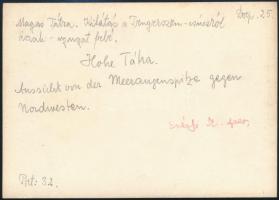 Magas Tátra. Kilátás a Tengerszem-csúcsról
észak-nyugat felé.
Hohe Tátra.
Aussicht von der Meeraugenspitze gegen
Nordwesten.